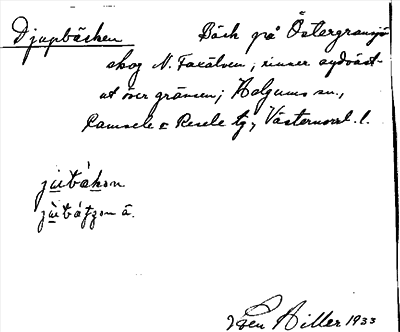 Djupbäcken Bäck på Östergransjö
skog N. Faxälven; rinner sydväst-
ut över gränsen; Helgums sn.,
Ramsele o Resele tg, Västernorrl. l.
jùbákon
jùbátzon ā.
Sven Hiller 1933